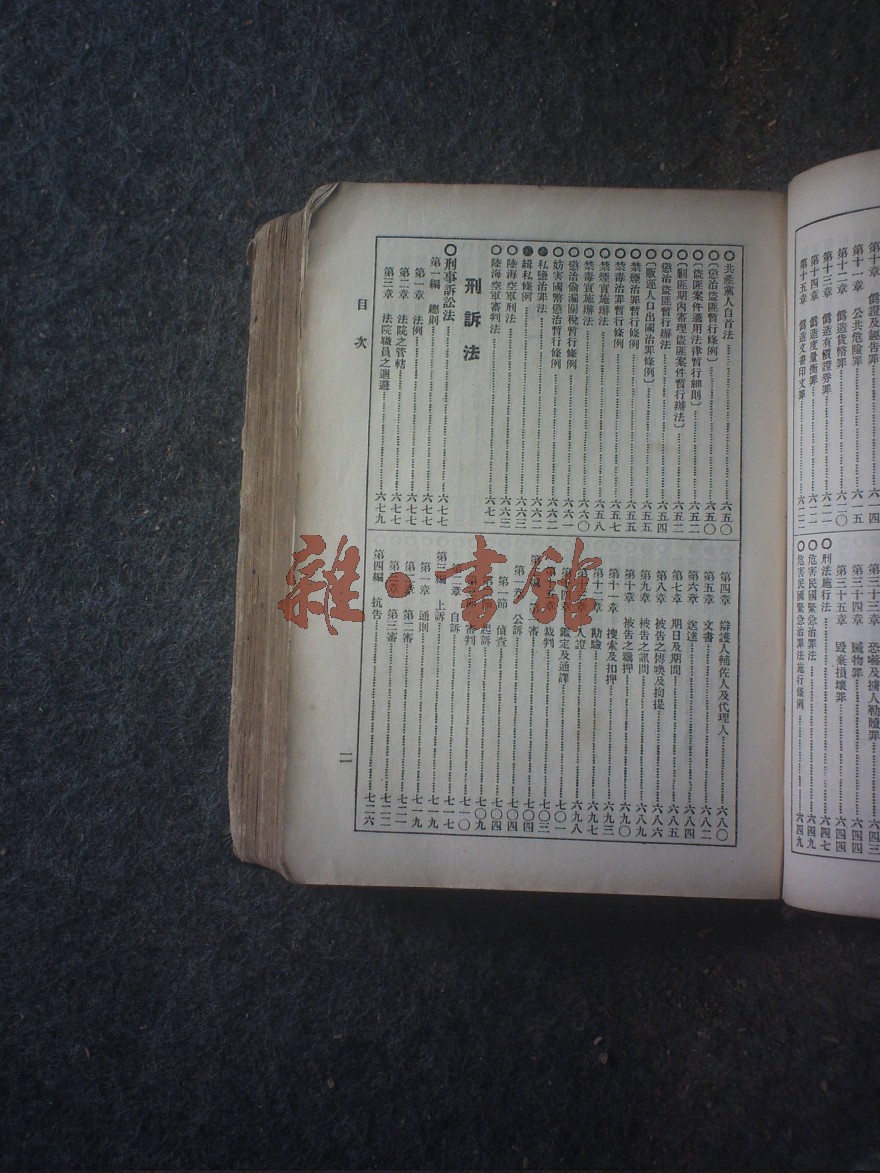 第十章 僞證及誣告罪……六一四
第十一章 公共危險罪……六一五
第十二章 僞造貨幣罪……六二〇
第十三章 僞造有價證券罪……六二一
第十四章 僞造度量衡罪……六二一
第十五章 僞造文書印文罪……六二二
第三十三章 恐嚇及擄人勒贖罪……六四三
第三十四章 贓物罪……六四四
第三十五章 毀棄損壞罪……六四四
○刑法施行法……六四七
○危害民國緊急治罪法……六四九
○危害民國緊急治罪法施行條例……六四九
○共產黨人自首法……六五〇
○〔懲治盜匪暫行條例〕……六五〇
○〔盜匪案件適用法律暫行細則〕……六五二
○〔剿匪期內審理盜匪案件暫行辦法〕……六五二
○懲治盜匪暫行辦法……六五四
○〔販運人口出國治罪條例〕……六五五
○禁煙治罪暫行條例……六五五
○禁毒治罪暫行條例……六五七
○禁煙實施辦法……六五八
○禁毒實施辦法……六六〇
○懲治偷漏關稅暫行條例……六六一
○妨害國幣懲治暫行條例……六六二
私鹽治罪法……六六二
緝私條例……六六三
○陸海空軍刑法……六六三
○陸海空軍審判法……六七一
刑訴法
○刑事訴訟法……六七七
第一編 總則……六七七
第一章 法例……六七七
第二章 法院之管轄……六七七
第三章 法院職員之迴避……六七九
第四章 辯護人輔佐人及代理人……六八〇
第五章 文書……六八二
第六章 送達……六八四
第七章 期日及期間……六八五
第八章 被告之傳喚及拘提……六八六
第九章 被告之訊問……六八九
第十章 被告之羈押……六九〇
第十一章 搜索及扣押……六九三
第十二章 勘驗……六九七
人證……六九八
鑑定及通譯……七〇一
裁判……七〇三
審……七〇四
公訴……七〇四
第一節 偵查……七〇四
起訴……七〇九
審判……七一〇
第二章 自訴……七一七
第三編 上訴……七一九
第一章 通則……七一九
第二審……七二一
第三章 第三審……七二二
第四編 抗告……七二六
目次
二
雜·書館